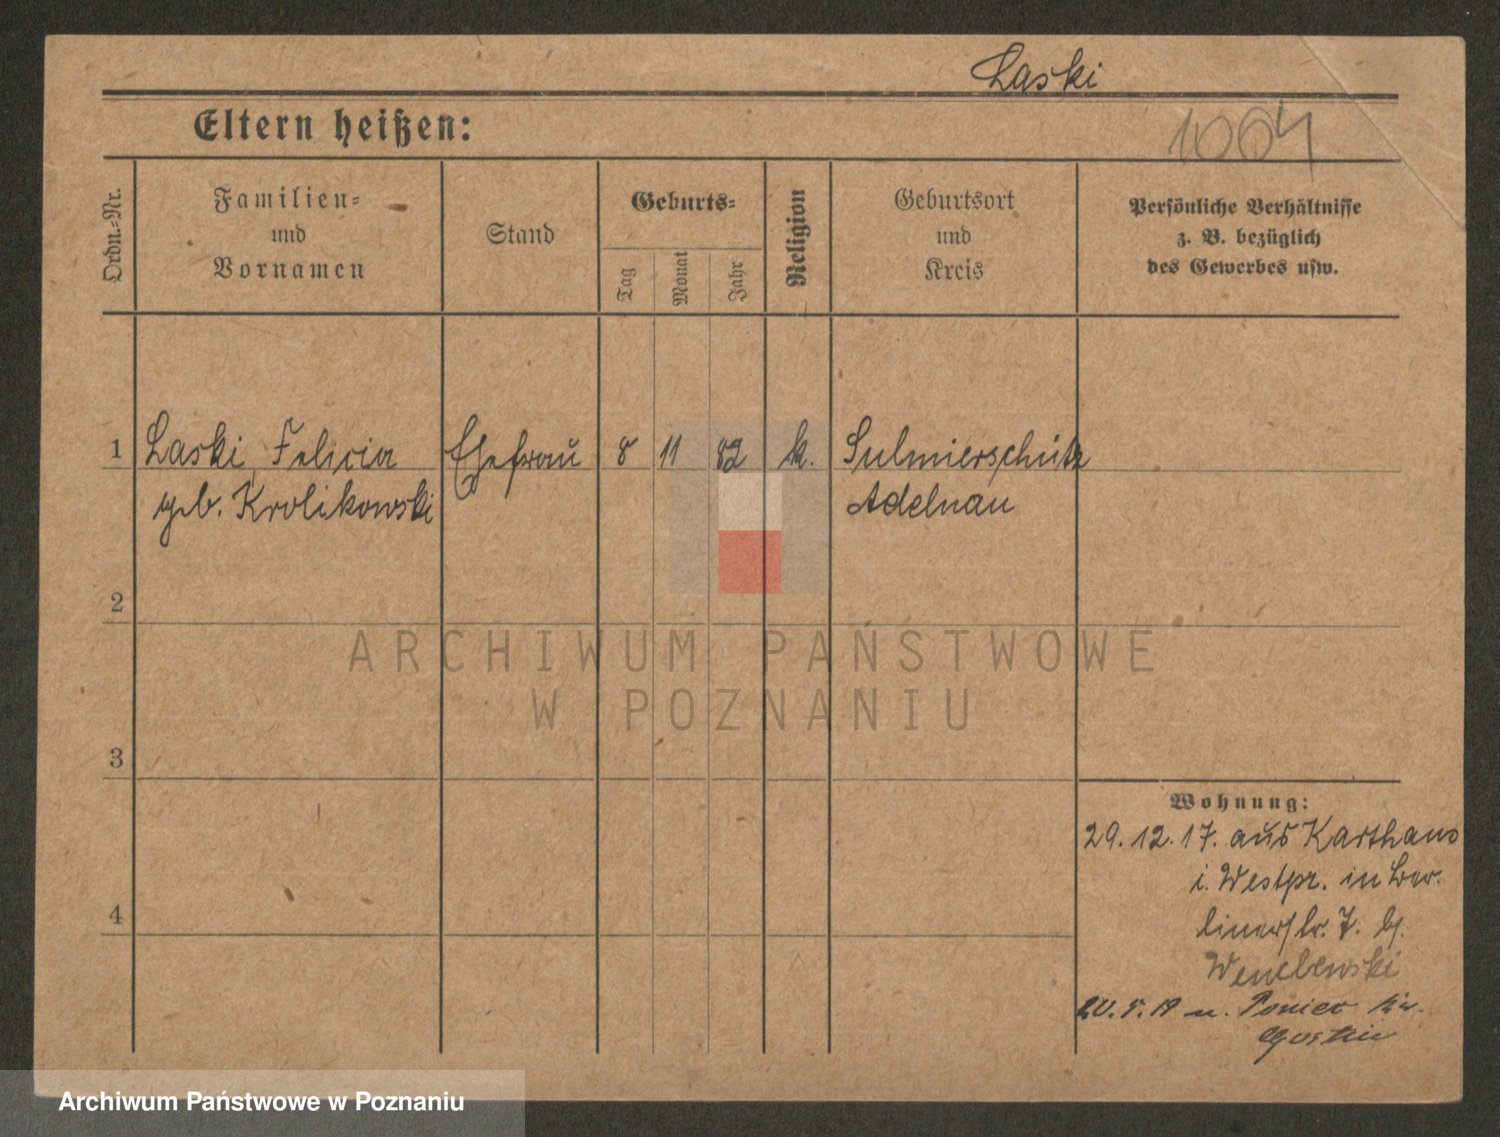 Laski
Eltern heißen:
1004
Ordn.-Nr.
Familien-
und
Vornamen
Stand
Geburts-
Tag
Monat
Jahr
Religion
Geburtsort
und
Kreis
Persönliche Verhältnisse
z. B. bezüglich
des Gewerbes usw.
1 Laski, Felicia Ehefrau 8 11 82 k. Sulmierschütz
geb. Krolikowski Adelnau
2
3
4
Wohnung:
29.12.17. aus Karthaus
i. Westpr. in Ber-
linerstr. 7. b.
20.5.19 n. Koniec Kr.
Gostin
ARCHIWUM PAŃSTWOWE
W POZNANIU
Archiwum Państwowe w Poznaniu